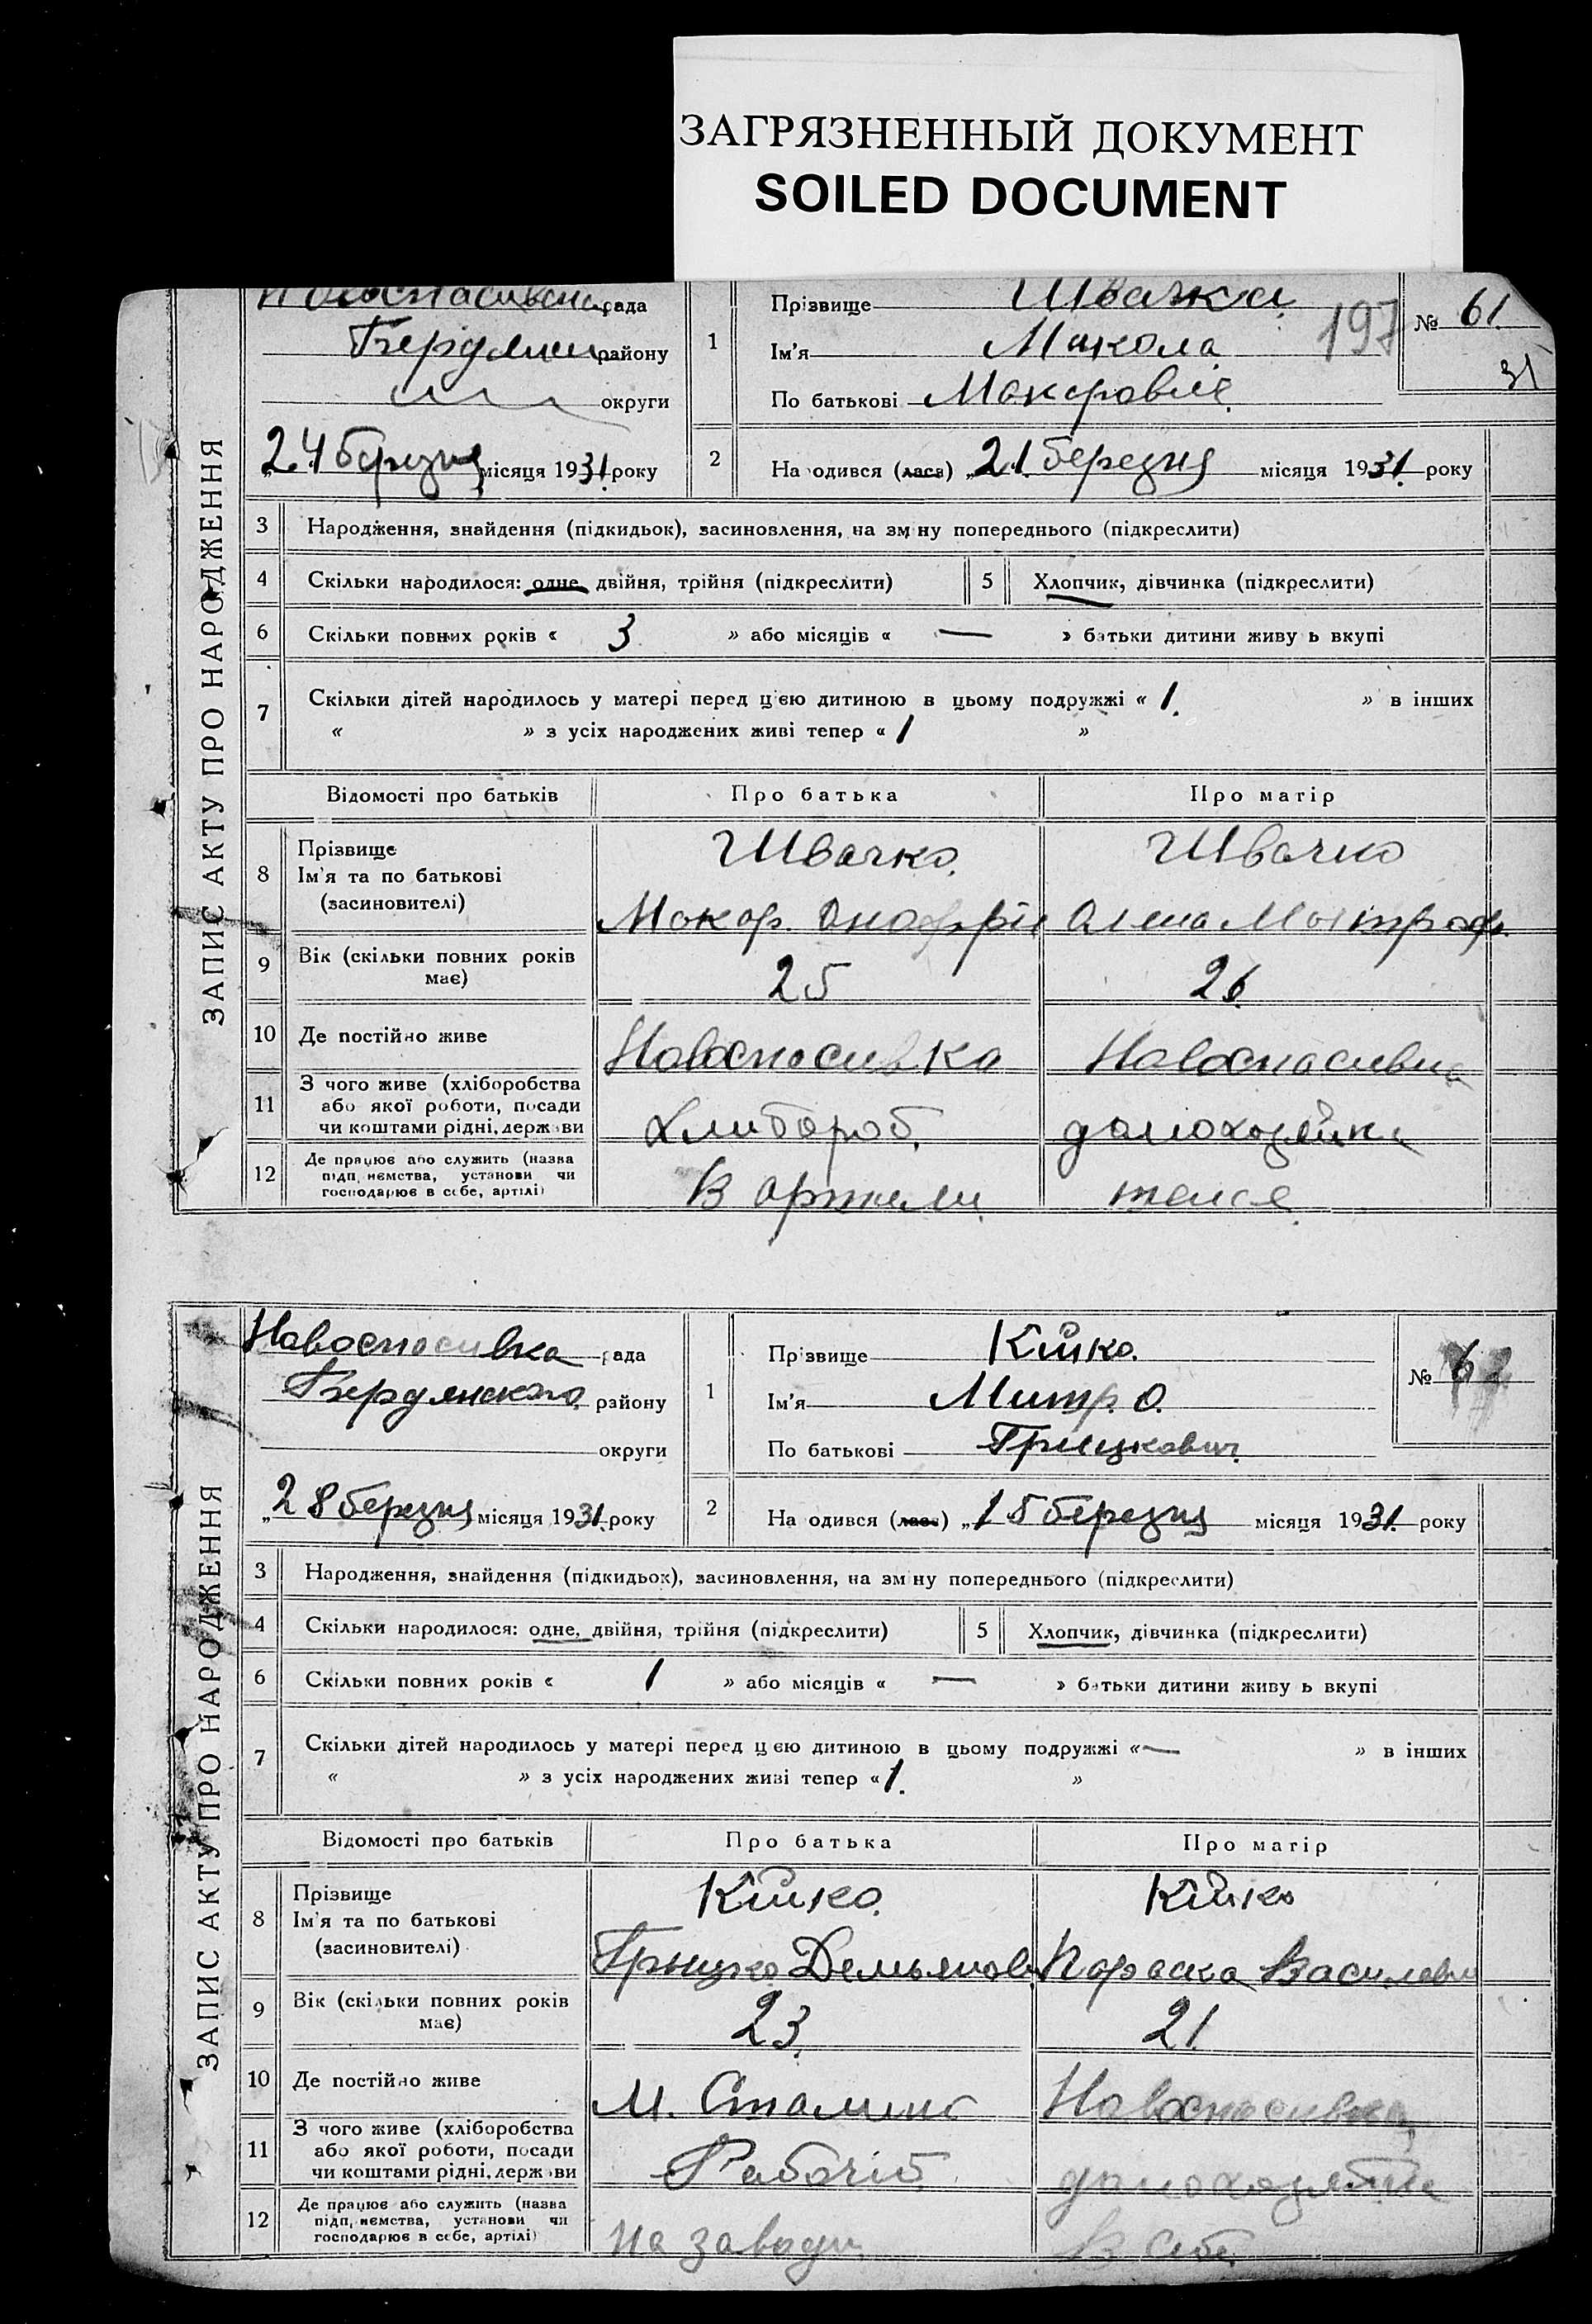 ЗАГРЯЗНЕННЫЙ ДОКУМЕНТ
SOILED DOCUMENT
ЗАПИС АКТУ ПРО НАРОДЖЕННЯ
рада
району
округи
24 березня місяця 1931 року
1
Прізвище Швачко
Ім'я Микола
По батькові
197
№ 61.
31
2
На одився (лася) „21 березня місяця 1931. року
3 Народження, знайдення (підкидьок), засиновлення, на зм ну попереднього (підкреслити)
4 Скільки народилося: одне, двійня, трійня (підкреслити) 5 Хлопчик, дівчинка (підкреслити)
6 Скільки повних років « 3 » або місяців « — » батьки дитини живу ь вкупі
7 Скільки дітей народилось у матері перед цією дитиною в цьому подружжі « 1. » в інших
« » з усіх народжених живі тепер « 1 »
Відомості про батьків Про батька Про матір
8 Прізвище
Ім'я та по батькові
(засиновителі)
Швачко. Швачко
9 Вік (скільки повних років
має)
25 26
10 Де постійно живе Новоспасивка Новоспасивка
11 З чого живе (хліборобства
або якої роботи, посади
чи коштами рідні, держ ви
Хлибороб.
12 Де працює або служить (назва
підп иємства, установи чи
господарює в себе, артілі)
В артели
ЗАПИС АКТУ ПРО НАРОДЖЕННЯ
Новоспасивка рада
Бердянского району
округи
„28 березня місяця 1931. року
1
Прізвище Кійко.
Ім'я Митро.
По батькові Грицкович.
№ 62
2
На одився (лася) „15 березня місяця 1931. року
3 Народження, знайдення (підкидьок), засиновлення, на зм ну попереднього (підкреслити)
4 Скільки народилося: одне, двійня, трійня (підкреслити) 5 Хлопчик, дівчинка (підкреслити)
6 Скільки повних років « 1 » або місяців « — » батьки дитини живу ь вкупі
7 Скільки дітей народилось у матері перед цією дитиною в цьому подружжі « — » в інших
« » з усіх народжених живі тепер « 1. »
Відомості про батьків Про батька Про матір
8 Прізвище
Ім'я та по батькові
(засиновителі)
Кійко. Кійко
Грыцко Демьянов Параска Василевн
9 Вік (скільки повних років
має)
23. 21.
10 Де постійно живе М. Сталино Новоспасивка
11 З чого живе (хліборобства
або якої роботи, посади
чи коштами рідні, держ ви
Рабочій.
12 Де працює або служить (назва
підп иємства, установи чи
господарює в себе, артілі)
на заводи. В себе.